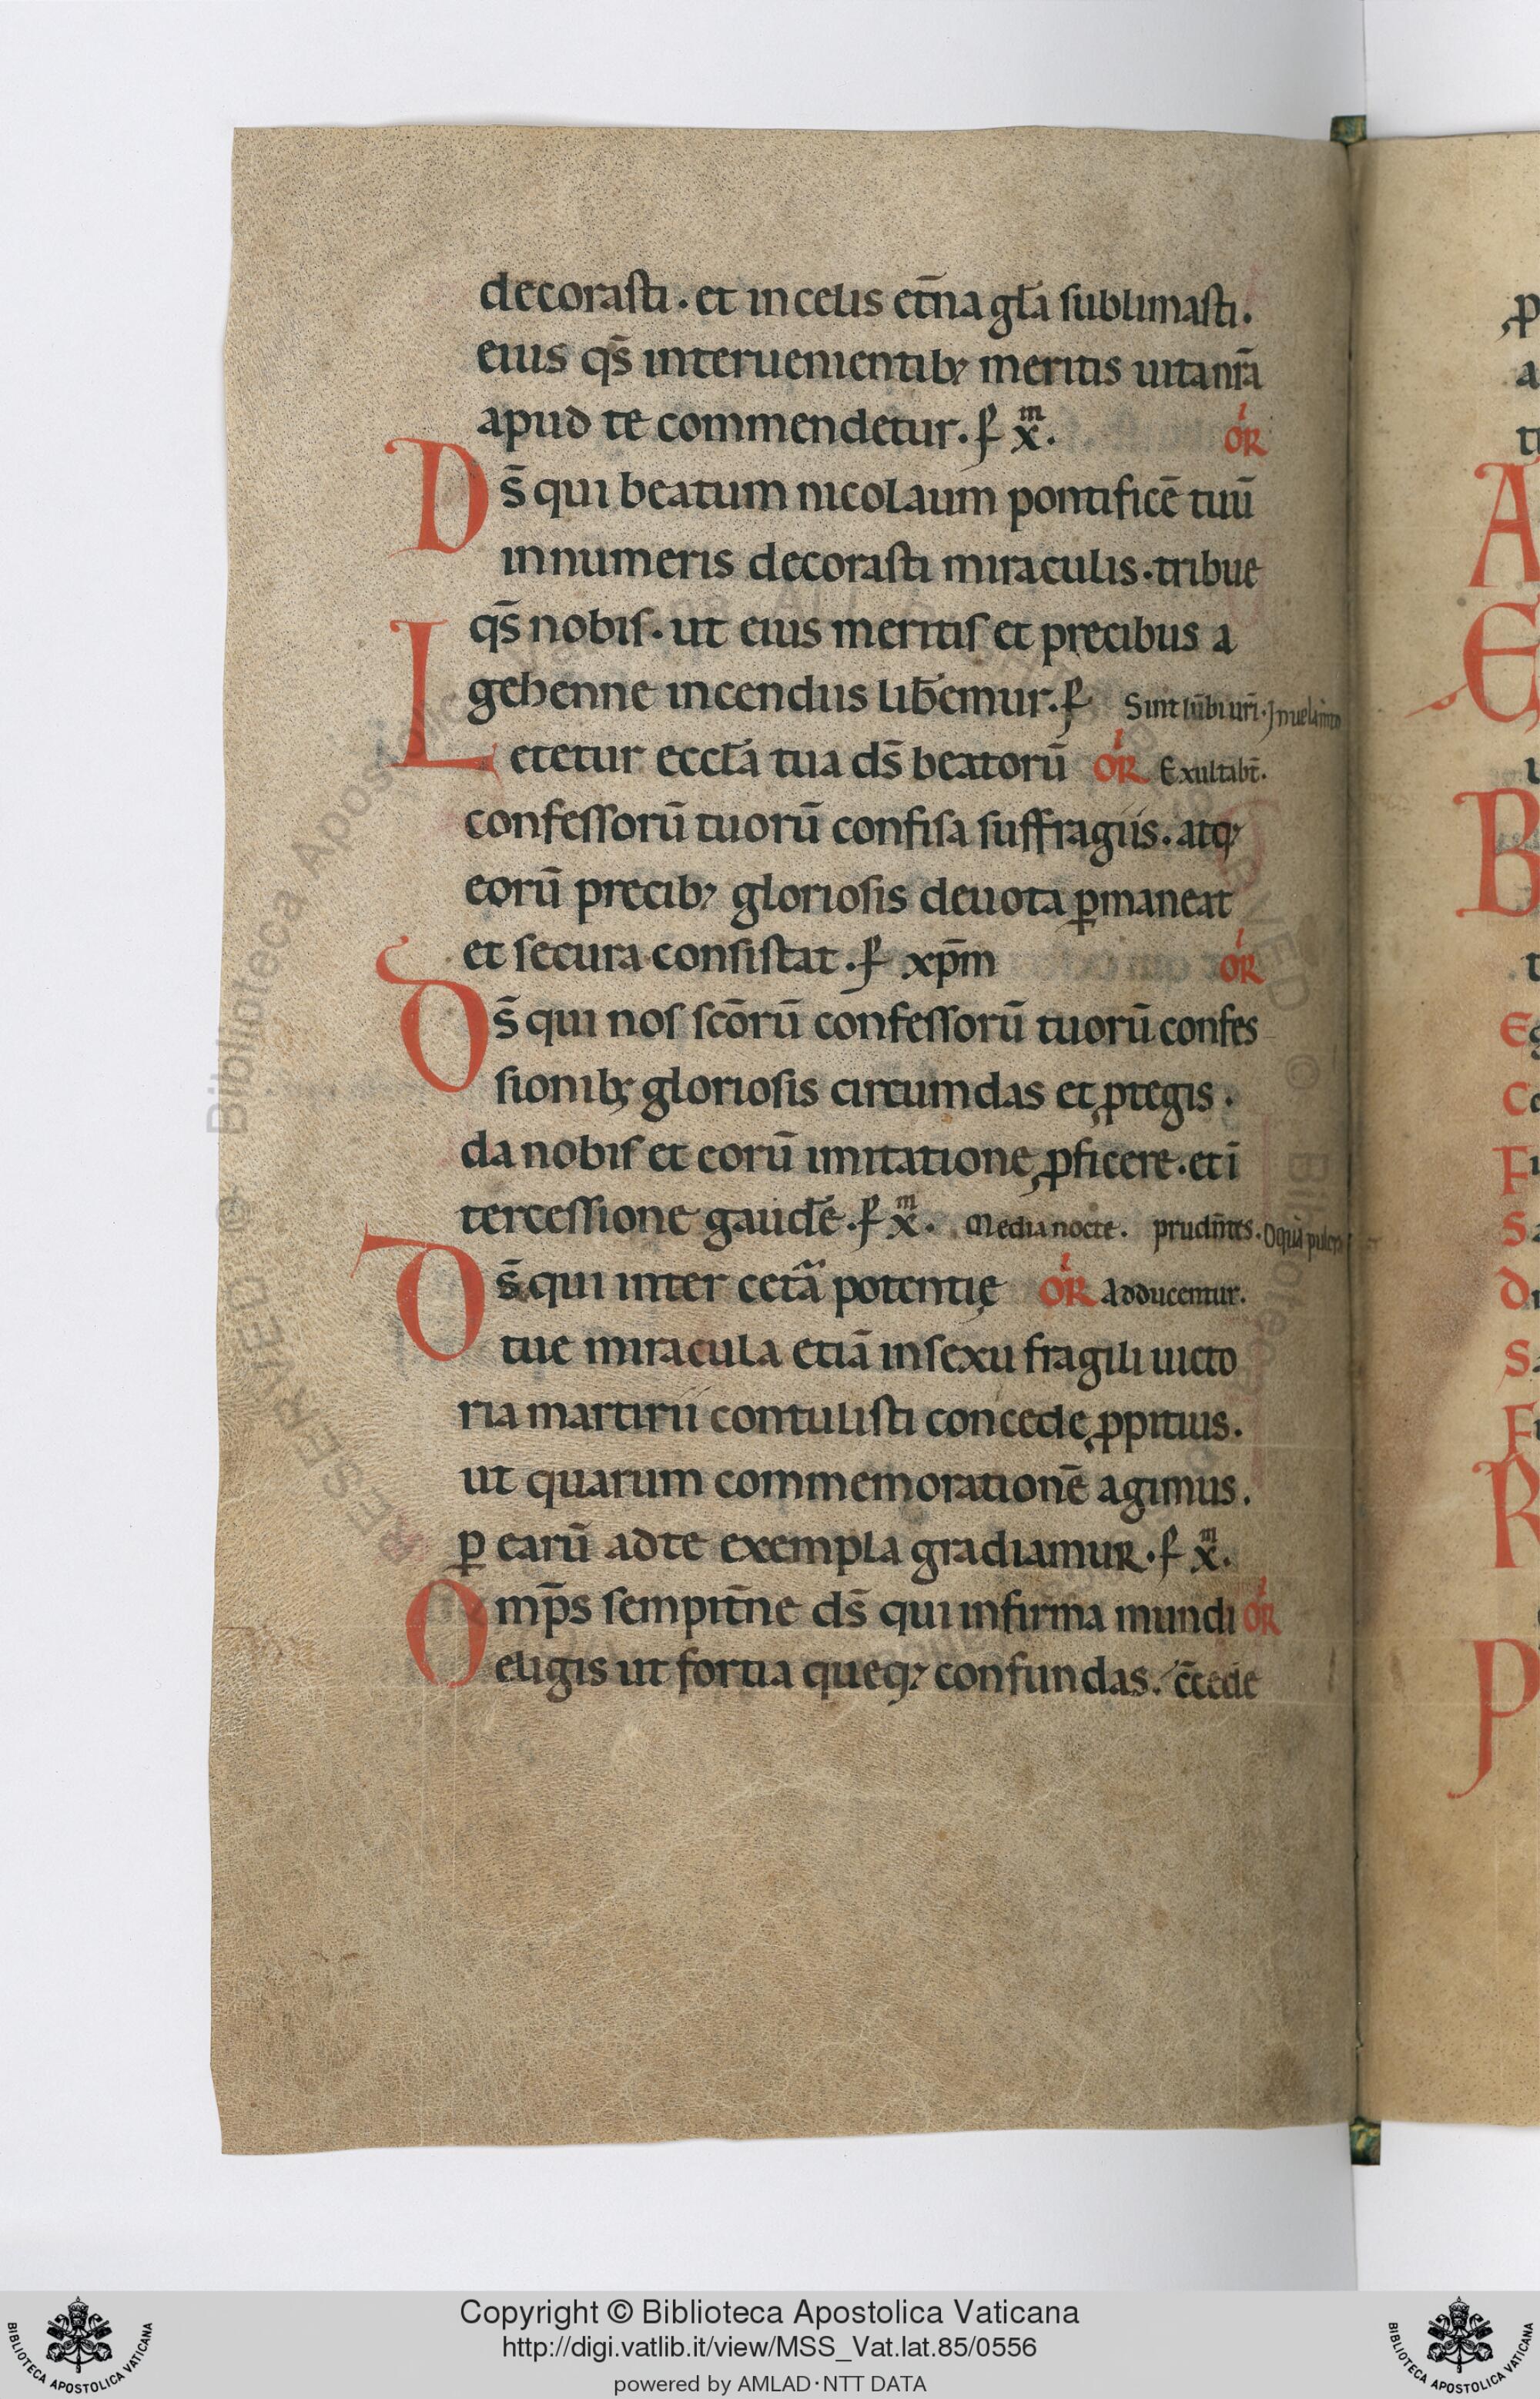 decorasti. et in celis et̄na gl̄a sublimasti.
eius qs̄ interuenientib; meritis uita nr̄a
apud te commendetur. P xͫ. or̄
Ds̄ qui beatum nicolaum pontificē tuū
innumeris decorasti miraculis. tribue
qs̄ nobis. ut eius meritis et precibus a
gehenne incendiis lib̄emur. P Sint lūbi ur̄i.
Letetur eccl̄a tua ds̄ beatorū or̄ Exultab̄t.
confessorū tuorū confisa suffragiis. atq;
eorū precib; gloriosis deuota ꝑmaneat
et secura consistat. P xp̄m or̄
Ds̄ qui nos sc̄orū confessorū tuorū confes
sionib; gloriosis circumdas et ꝓtegis.
da nobis et eorū imitatione ꝓficere. et ī
tercessione gaud̄e. P xͫ. Media nocte. prudn̄tes.
Ds̄ qui inter cetā potentię or̄ Adducentur.
tue miracula etiā in sexu fragili uicto
ria martirii contulisti concede ꝓpitius.
ut quarum commemorationē agimus.
ꝑ earū ad te exempla gradiamur. P xͫ.
Omp̄s sempit̄ne ds̄ qui infirma mundi or̄
eligis ut fortia queq; confundas. c̄cede
Copyright © Biblioteca Apostolica Vaticana
http://digi.vatlib.it/view/MSS_Vat.lat.85/0556
powered by AMLAD·NTT DATA
BIBLIOTECA APOSTOLICA VATICANA
BIBLIOTECA APOSTOLICA VATICANA